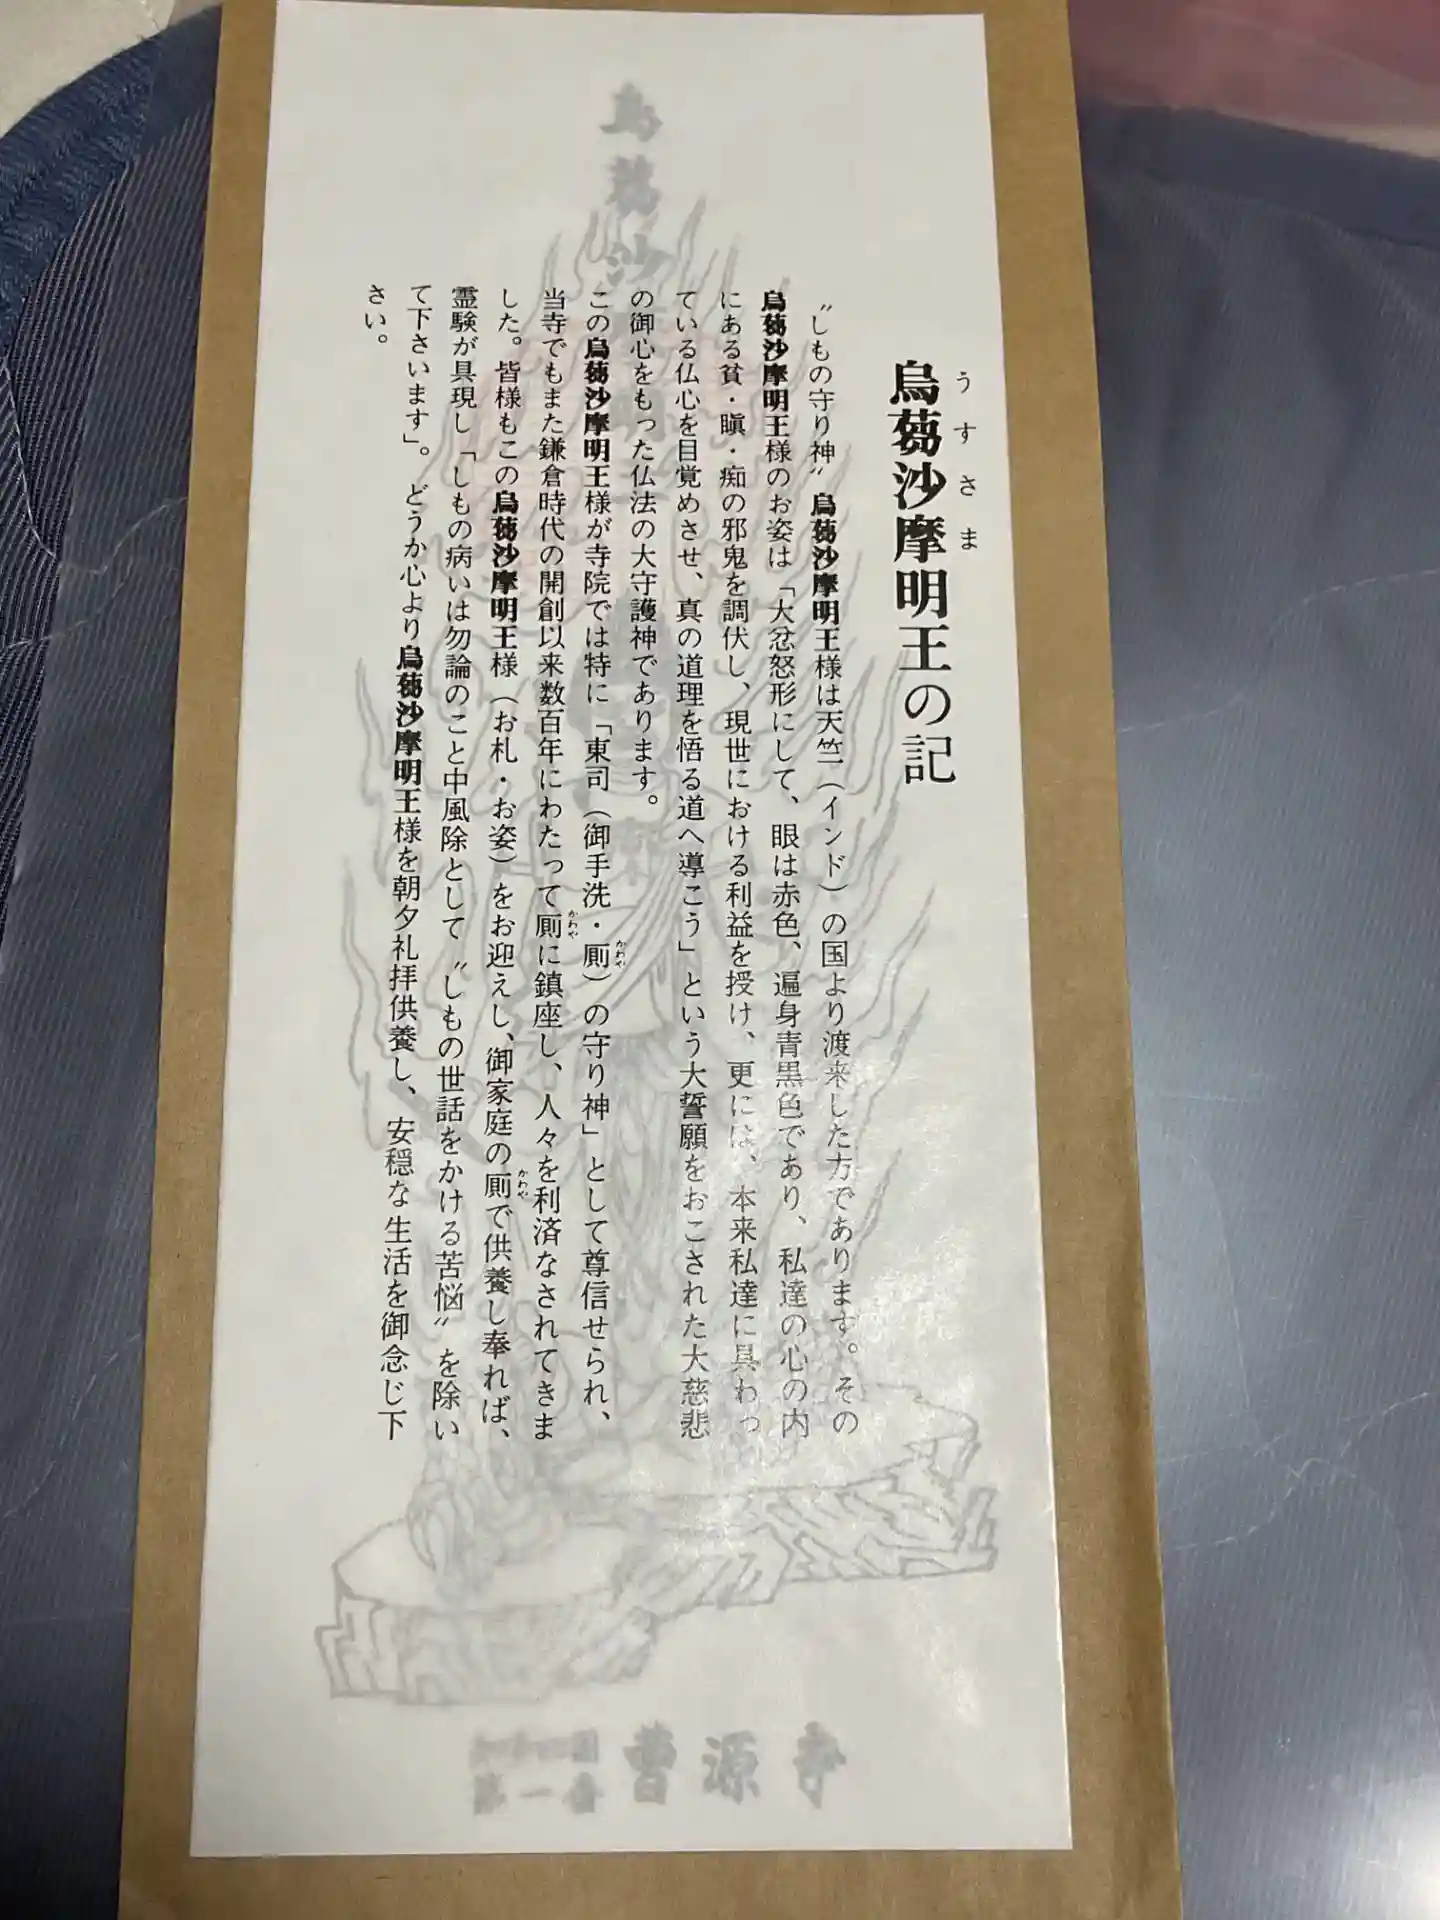 烏蒭沙摩明王の記
うすさま
〝しもの守り神〟烏蒭沙摩明王様は天竺（インド）の国より渡来した方であります。その
烏蒭沙摩明王様のお姿は「大忿怒形にして、眼は赤色、遍身青黒色であり、私達の心の内
にある貧・瞋・痴の邪鬼を調伏し、現世における利益を授け、更には、本来私達に具わっ
ている仏心を目覚めさせ、真の道理を悟る道へ導こう」という大誓願をおこされた大慈悲
の御心をもった仏法の大守護神であります。
この烏蒭沙摩明王様が寺院では特に「東司（御手洗・厠）の守り神」として尊信せられ、
かわや
当寺でもまた鎌倉時代の開創以来数百年にわたって厠に鎮座し、人々を利済なされてきま
かわや
した。皆様もこの烏蒭沙摩明王様（お札・お姿）をお迎えし、御家庭の厠で供養し奉れば、
かわや
霊験が具現し「しもの病いは勿論のこと中風除として〝しもの世話をかける苦悩〟を除い
て下さいます」。どうか心より烏蒭沙摩明王様を朝夕礼拝供養し、安穏な生活を御念じ下
さい。
烏蒭沙
曹源寺